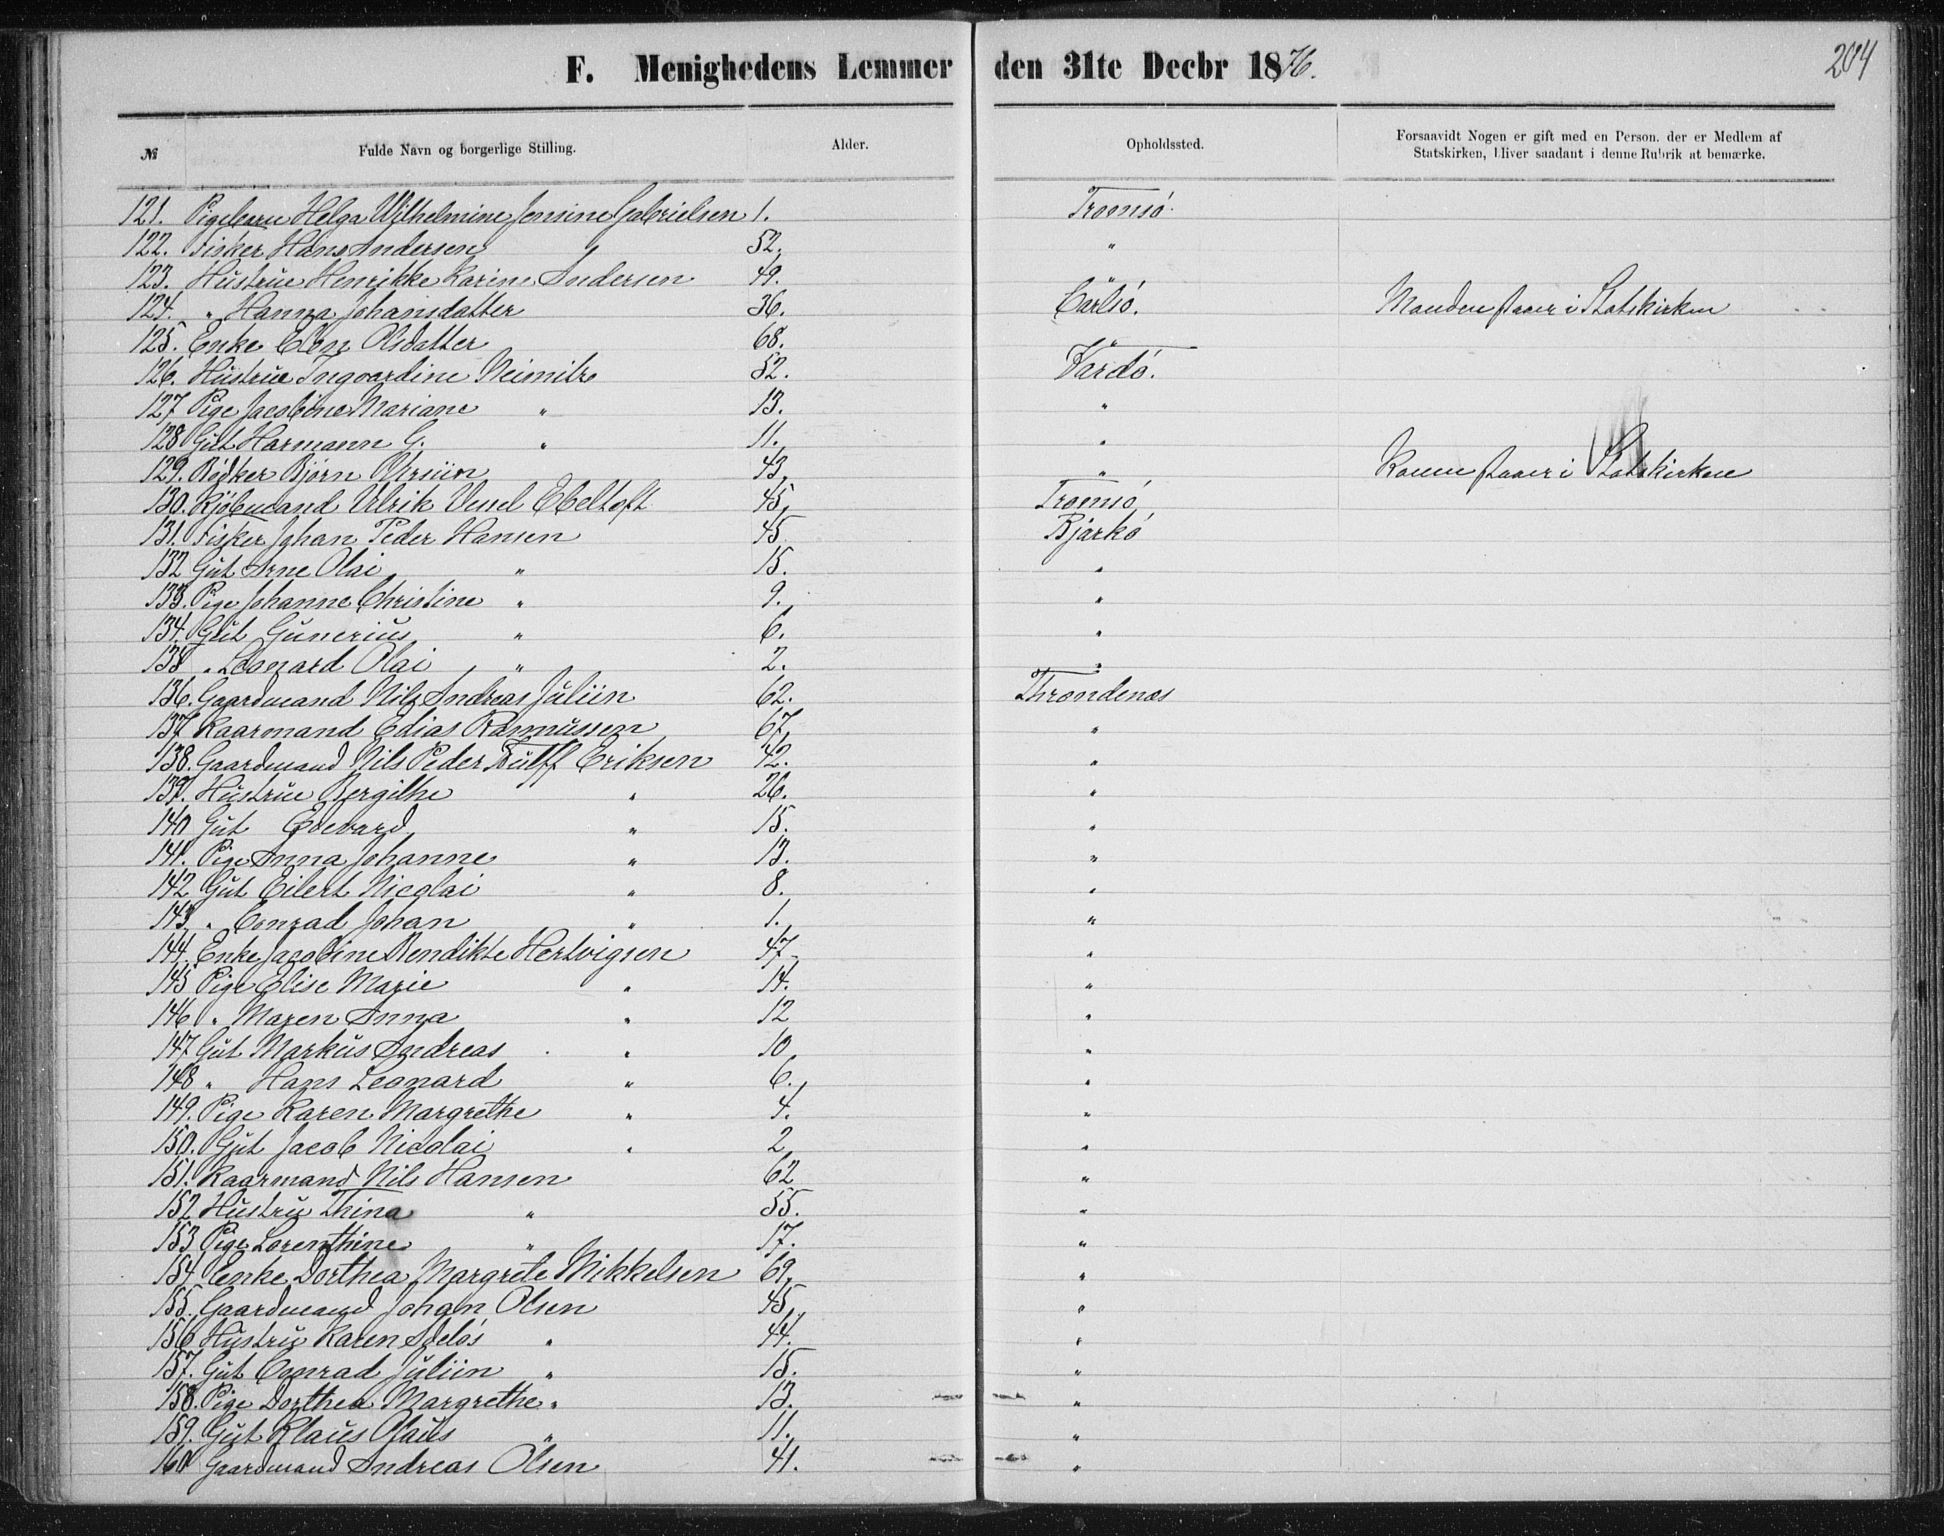 204
F. Menighedens Lemmer den 31te Decbr 1876.
№ Fulde Navn og borgerlige Stilling. Alder. Opholdssted. Forsaavidt Nogen er gift med en Person, der er Medlem af
Statskirken, bliver saadant i denne Rubrik at bemærke.
121. Pigebarn Helga Wilhelmine Jensine Gabrielsen 1. Tromsö.
122. Fisker Hans Andersen 52. "
123. Hustrue Henrikke Karine Andersen 49. "
124. " Hanna Johansdatter 36. Carlsö. Manden staaer i Statskirken
125. Enke Elen Olsdatter 68. "
126. Hustrue Ingvardine 52. Vardö.
127 Pige Jacobine Mariane " 13. "
128 Gut Harmann G. " 11. "
129. Bödker Björn 43. " Konen staaer i Statskirken
130. Kjöbmand Ulrik Ebeltoft 45. Tromsö
131. Fisker Johan Peder Hansen 45. Bjarkö
132 Gut Arne Olai " 15. "
133. Pige Johanne Christine " 9. "
134. Gut Gunerius " 6. "
135 " Leonard Olai " 2. "
136. Gaardmand Nils Andreas Juliin 62. Throndenæs
137 Kaarmand Edias Rasmussen 67. "
138. Gaardmand Nils Peder Eriksen 42. "
139. Hustrue Bergithe " 26. "
140 Gut Edevard " 15. "
141. Pige Anna Johanne " 13. "
142 Gut Eilert Nicolai " 8. "
143 " Conrad Johan " 1. "
144. Enke Jacobine Bendikte Hertvigsen 47. "
145 Pige Elise Marie " 14. "
146 " Maren Anna " 12 "
147 Gut Markus Andreas " 10. "
148 " Hans Leonard " 6. "
149. Pige Karen Margrethe " 4. "
150. Gut Jacob Nicolai " 2 "
151. Kaarmand Nils Hansen 62 "
152 Hustru Thina " 55. "
153 Pige Lorenthine " 17. "
154 Enke Dorthea Margrete Mikkelsen 69. "
155. Gaardmand Johan Olsen 45. "
156 Hustru Karen Adelös " 44. "
157. Gut Conrad Juliin " 15. "
158. Pige Dorthea Margrethe " 13. "
159. Gut Klaus Olaus " 11. "
160 Gaardmand Andreas Olsen 41. "